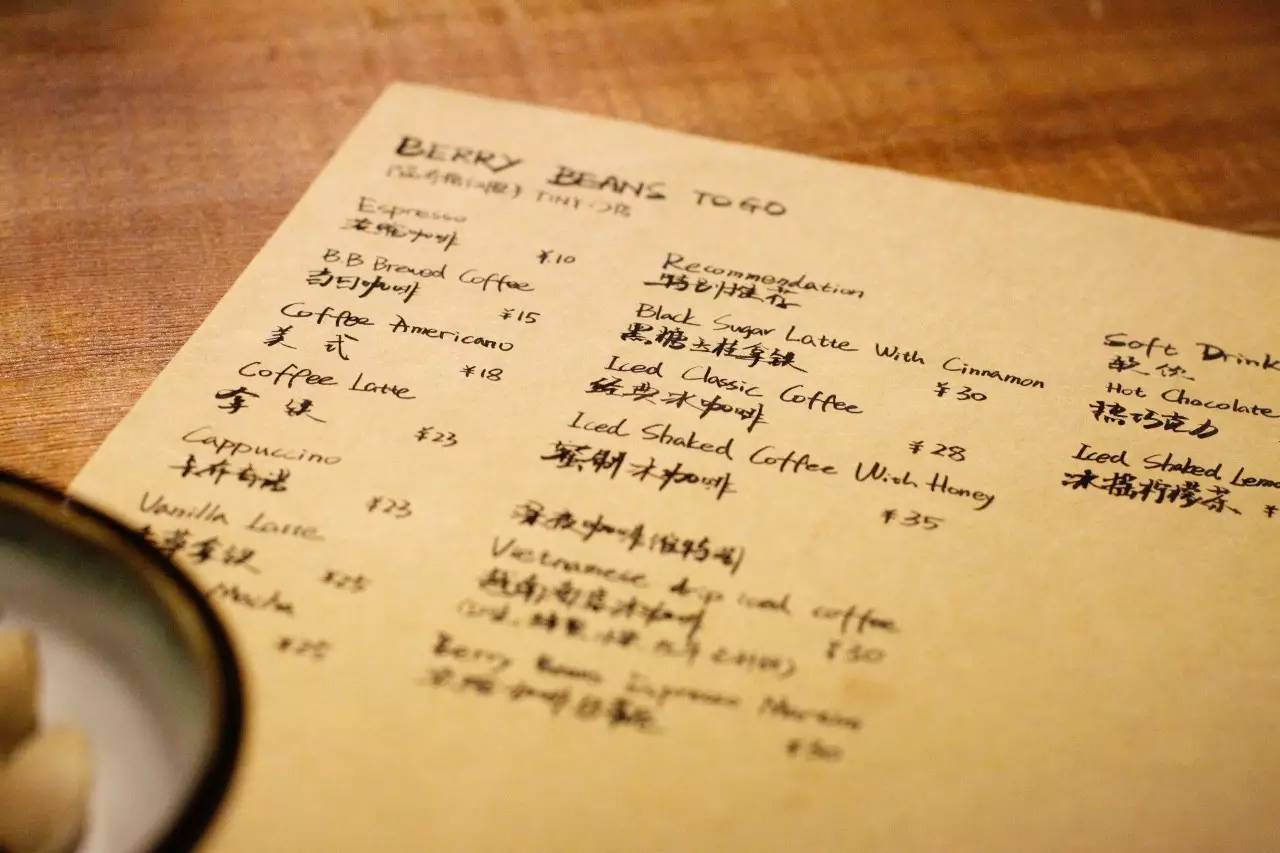 BERRY BEANS TO GO
TINY 门店
Espresso
浓缩咖啡
¥10
B.B Brewed Coffee
当日咖啡
¥15
Coffee Americano
美 式
¥18
Coffee Latte
拿 铁
¥23
Cappuccino
卡布奇诺
¥23
Vanilla Latte
拿铁
¥25
Mocha
¥25
Recommendation
特别推荐
Black Sugar Latte With Cinnamon
黑糖玉桂拿铁
¥30
Iced Classic Coffee
经典冰咖啡
¥28
Iced Shaked Coffee With Honey
蜜制冰咖啡
¥35
深夜咖啡
Vietnamese drip iced coffee
越南滴落冰咖啡
¥30
Berry Beans Espresso
浓缩咖啡
Soft Drink
软饮
Hot Chocolate
热巧克力
Iced Shaked
冰摇柠檬茶
¥